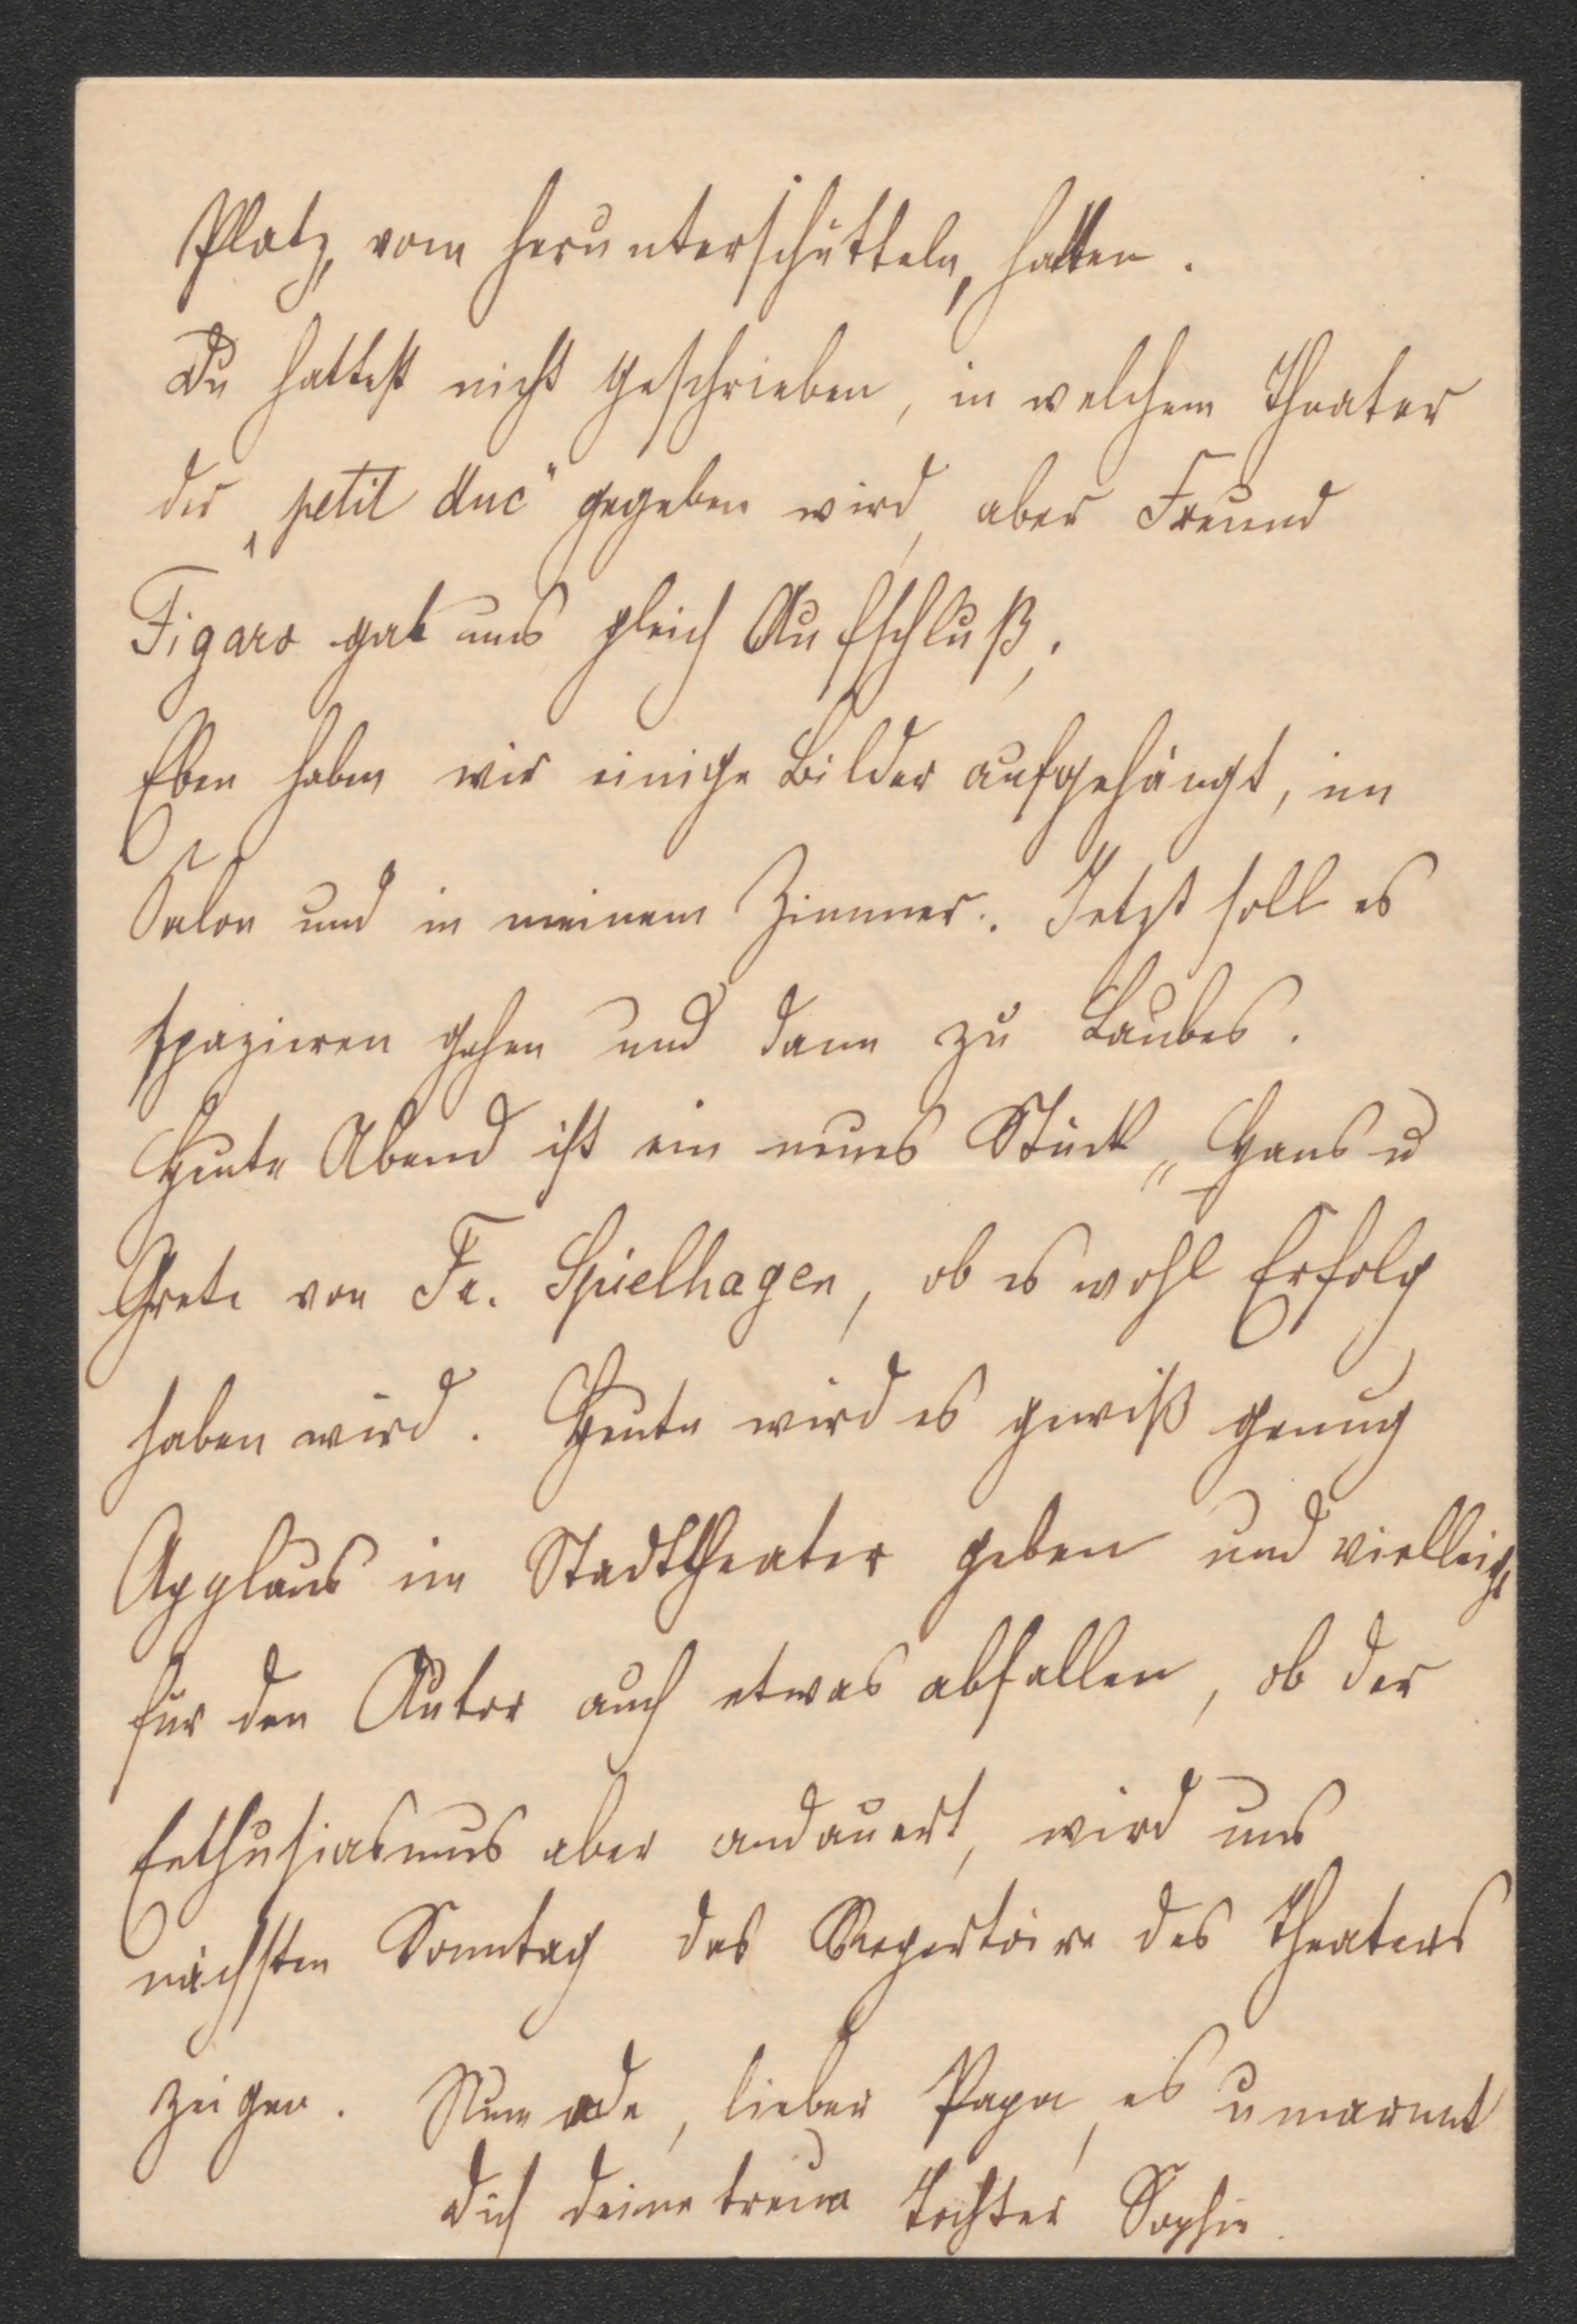 Platz, vom herunterschütteln, hatten.
Du hattest nicht geschrieben, in welchem Theater
der „petit duc“ gegeben wird, aber Freund
Figaro gab uns gleich Aufschluß,.
Eben haben wir einige Bilder aufgehängt, im
Salon und in meinem Zimmer. Jetzt soll es
spazieren gehen und dann zu Laubes.
Heute Abend ist ein neues Stück „Hans u
Grete von Fr. Spielhagen, ob es wohl Erfolg
haben wird. Heute wird es gewiß genug
Applaus im Stadttheater geben und vielleicht
für den Autor auch etwas abfallen, ob der
Enthusiasmus aber andauert, wird uns
nächsten Sonntag das Repertoire des Theaters
zeigen. Nun ade, lieber Papa, es umarmt
Dich Deine treue Tochter Sophie.